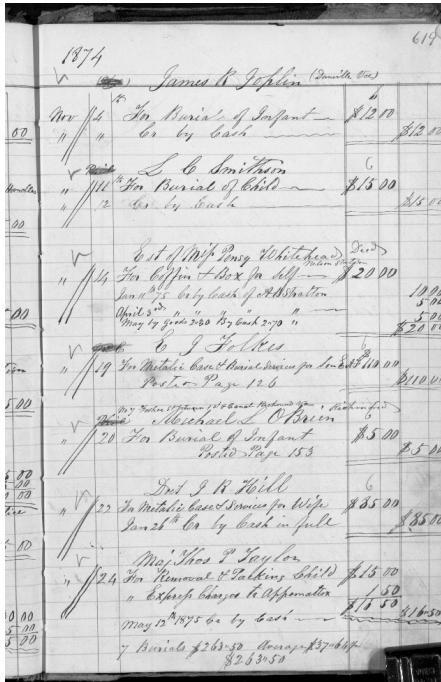 619
1874
James R Joplin (Danville Vae)
Nov 4th For Burial of Infant $12 00
" " Cr by Cash $12 00
L C Smithson 6
" 11th For Burial of Child $15 00
" 12 Cr by Cash $15 00
Est of Miss Pensy Whitehead Deed
" 14 For Coffin & Box for Self $20 00
Jany 11th 75 Cr by Cash of A B Stratton 10 00
5 00
April 3rd " " " " " 5 00
May by Goods 2=30 By Cash 2=70 " $20 00
E J Folkes 6
" 19 For Metalic Case & Burial Services for Son $110 00
Posted Page 126 $110 00
Michael L O'Brien Richmond 6
" 20 For Burial of Infant $5 00
Posted Page 153 $5 00
J R Hill 6
" 22 For Metalic Case & Services for Wife $85 00
Jan 26th Cr by Cash in full $85 00
Maj Thos P Taylor
" 24 For Removal & Packing Child $15 00
" Express Charges to Appomattox 1 50
$16 50
May 12th 1875 Cr by Cash $16=50
7 Burials $263=50 Average $37=64
$263=50